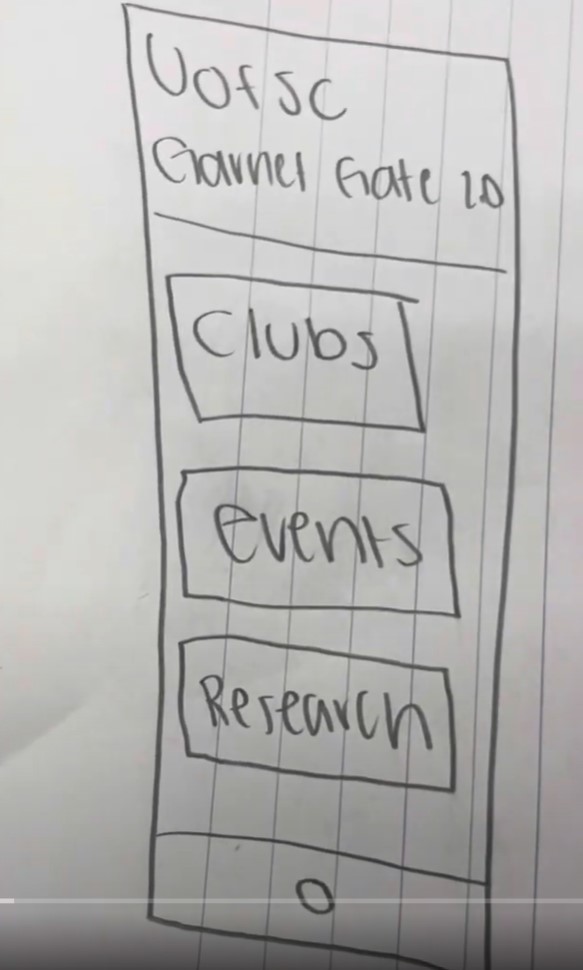 UofSC
Garnet Gate 2.0
Clubs
Events
Research